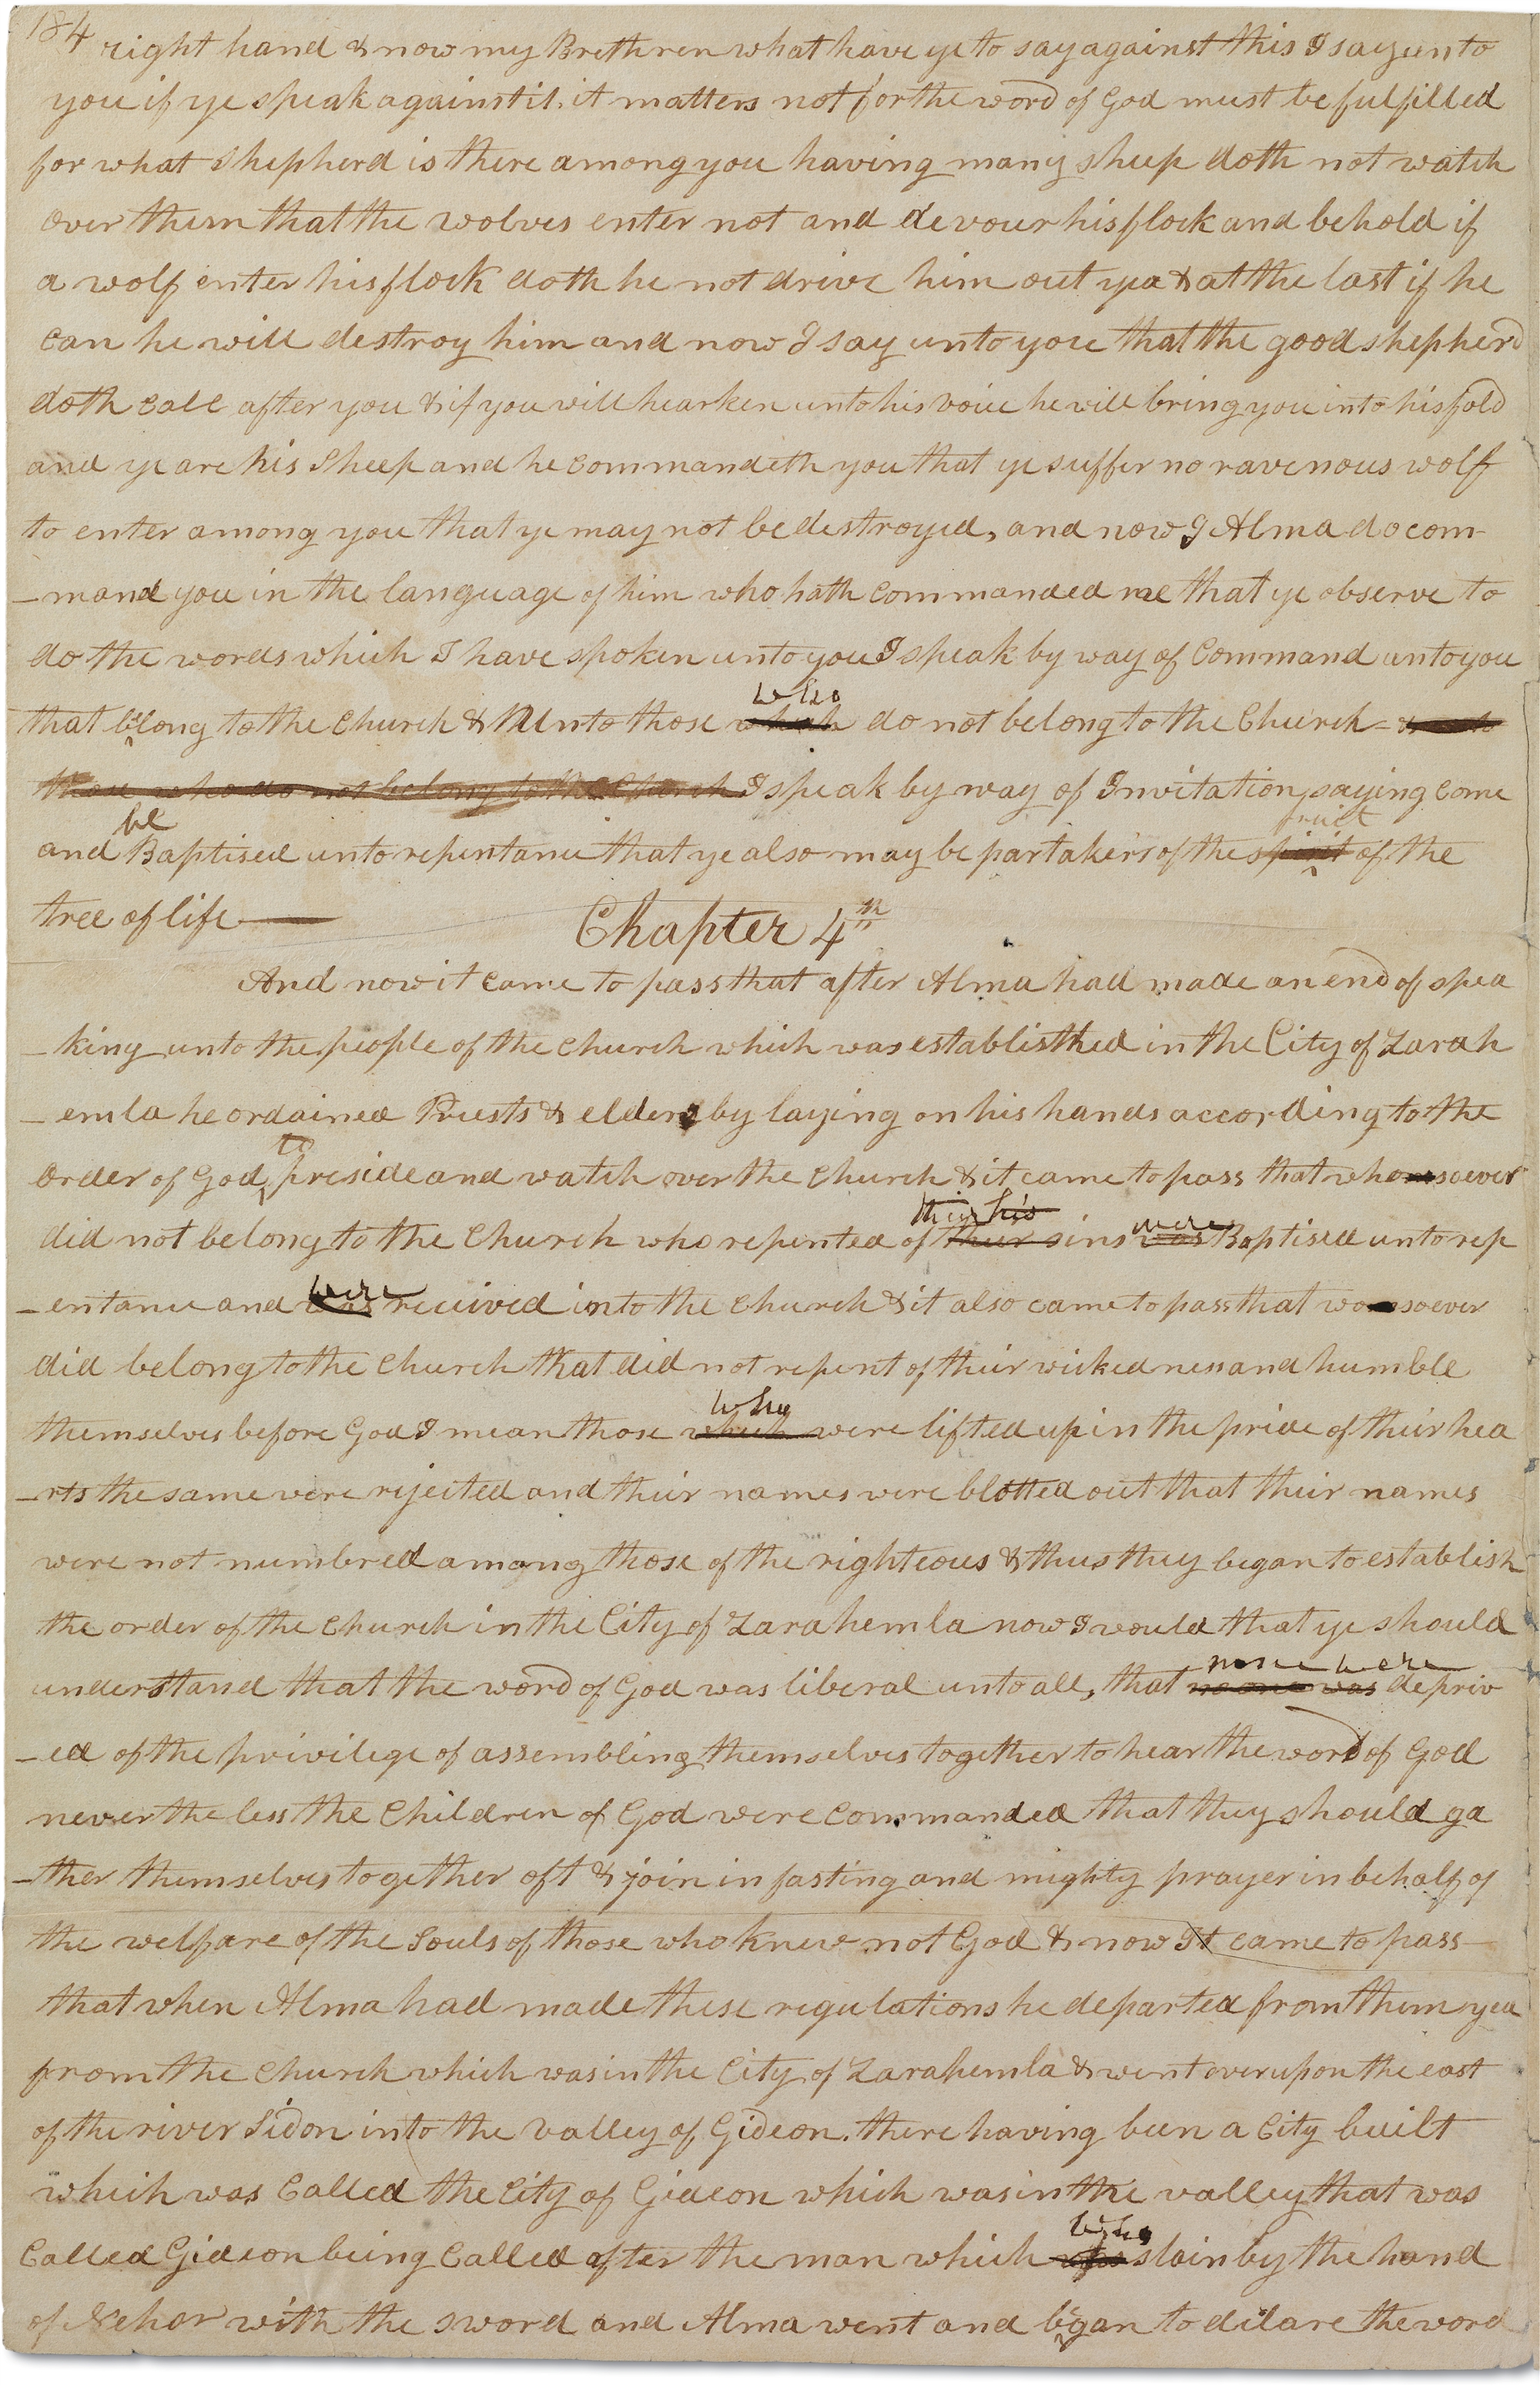 184
right hand & now my Brethren what have ye to say against this I say unto
you if ye speak against it, it matters not for the word of God must be fulfilled
for what shepherd is there among you having many sheep doth not watch
over them that the wolves enter not and devour his flock and behold if
a wolf enter his flock doth he not drive him out yea & at the last if he
can he will destroy him and now I say unto you that the good shepherd
doth call after you & if you will hearken unto his voice he will bring you into his fold
and ye are his sheep and he commandeth you that ye suffer no ravenous wolf
to enter among you that ye may not be destroyed, and now I Alma do com-
-mand you in the language of him who hath commanded me that ye observe to
do the words which I have spoken unto you I speak by way of Command unto you
who
that belong to the Church & unto those which do not belong to the Church - & unto
those who do not belong to the Church I speak by way of Invitation, saying come
be fruit
and Baptised unto repentance that ye also may be partakers of the spirit of the
tree of life—
Chapter 4th
And now it came to pass that after Alma had made an end of spea
-king unto the people of the church which was establisthed in the City of Zarah
-emla he ordained Priests & elders by laying on his hands according to the
to
order of God, preside and watch over the church & it came to pass that whomsoever
their his were
did not belong to the Church who repented of their sins was Baptised unto rep
were
-entance and was received into the church & it also came to pass that womsoever
did belong to the Church that did not repent of their wickedness and humble
who
themselves before God I mean those which were lifted up in the pride of their hea
-rts the same were rejected and their names were blotted out that their names
were not numbred among those of the righteous & thus they began to establish
the order of the church in the City of Zarahemla now I would that ye should
none were
understand that the word of God was liberal unto all, that no one was depriv
-ed of the privilege of assembling themselves together to hear the word of God
never the less the Children of God were commanded that they should ga
-ther themselves together oft & join in fasting and mighty prayer in behalf of
the welfare of the Souls of those who knew not God & now It came to pass
that when Alma had made these regulations he departed from them yea
from the church which was in the City of Zarahemla & went over upon the east
of the river Sidon into the valley of Gideon, there having been a City built
which was Called the City of Gideon which was in the valley that was
who
Called Gideon being Called after the man which was slain by the hand
of Nehor with the sword and Alma went and began to dclare the word